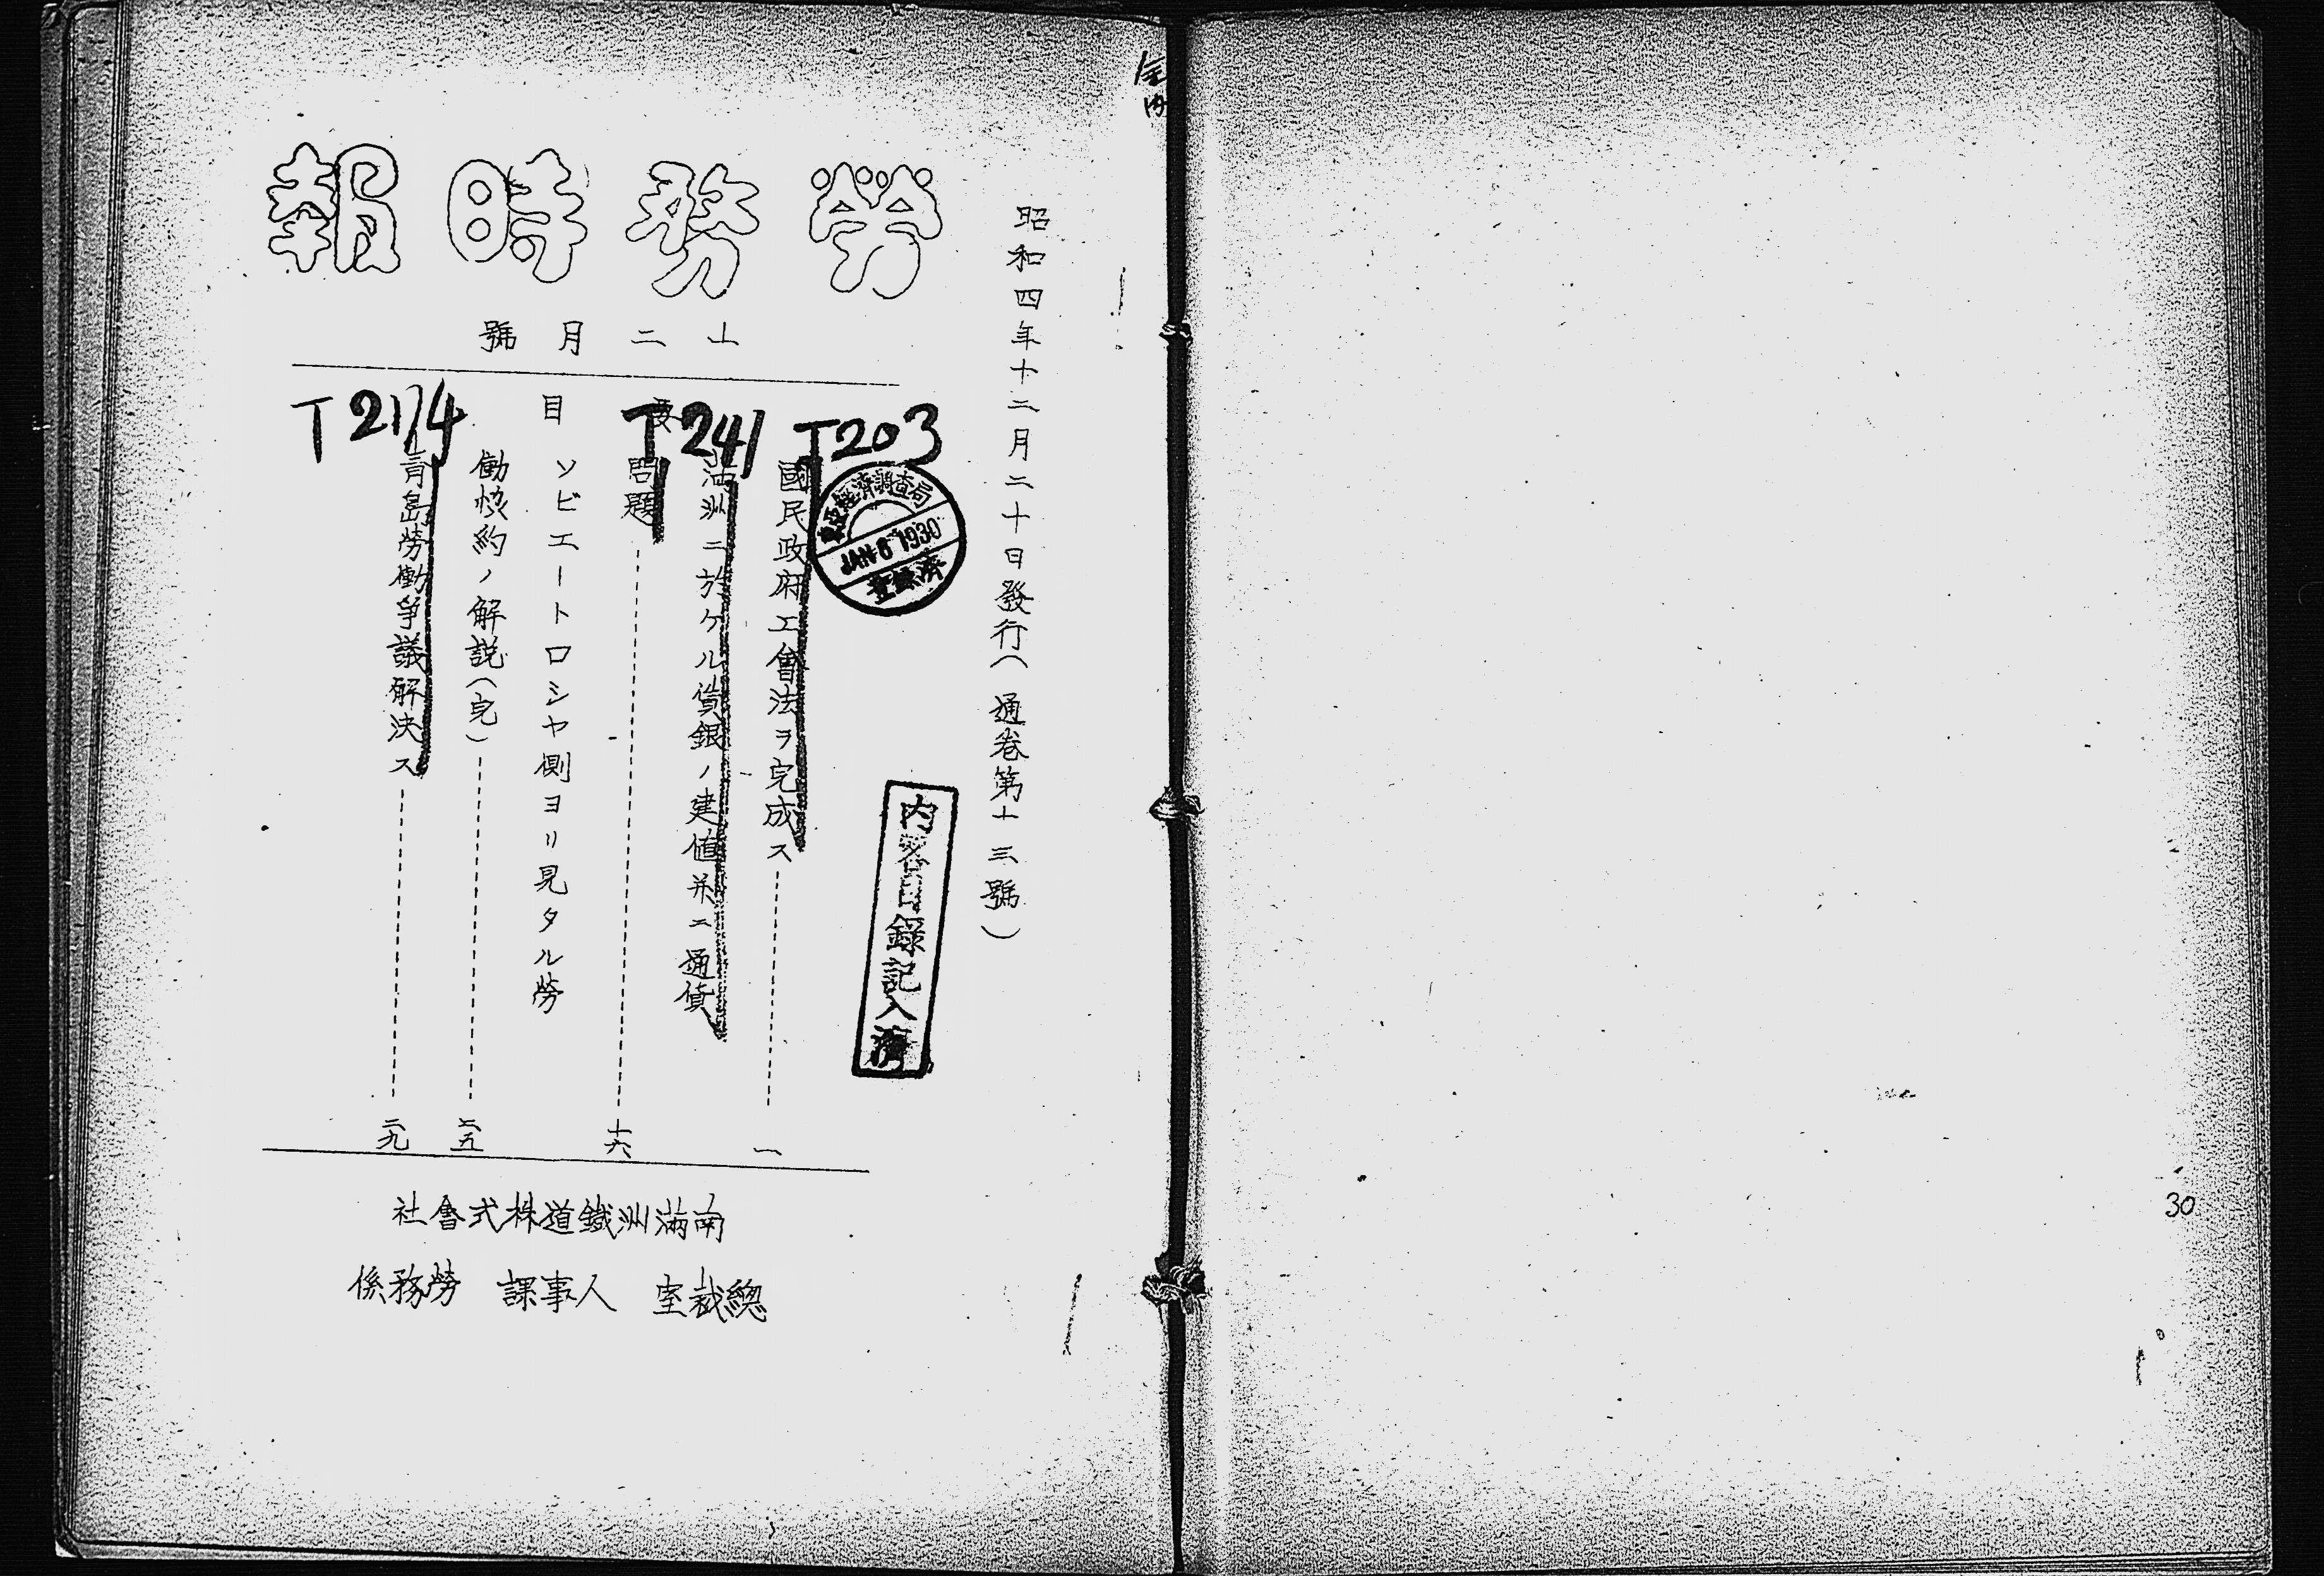 昭和四年十二月二十日發行（通卷第十三號）
勞務時報
十二月號
要目
國民政府工會法ヲ完成ス 一
滿洲ニ於ケル賃銀ノ建値并ニ通貨
問題 十六
ソビエートロシヤ側ヨリ見タル勞
働協約ノ解説（完） 二五
青島勞働爭議解決ス 二九
南滿洲鐵道株式會社
總裁室 人事課 勞務係
T203
T241
T2174
經濟調査局
JAN 6 1930
登錄濟
內容目錄記入濟
30